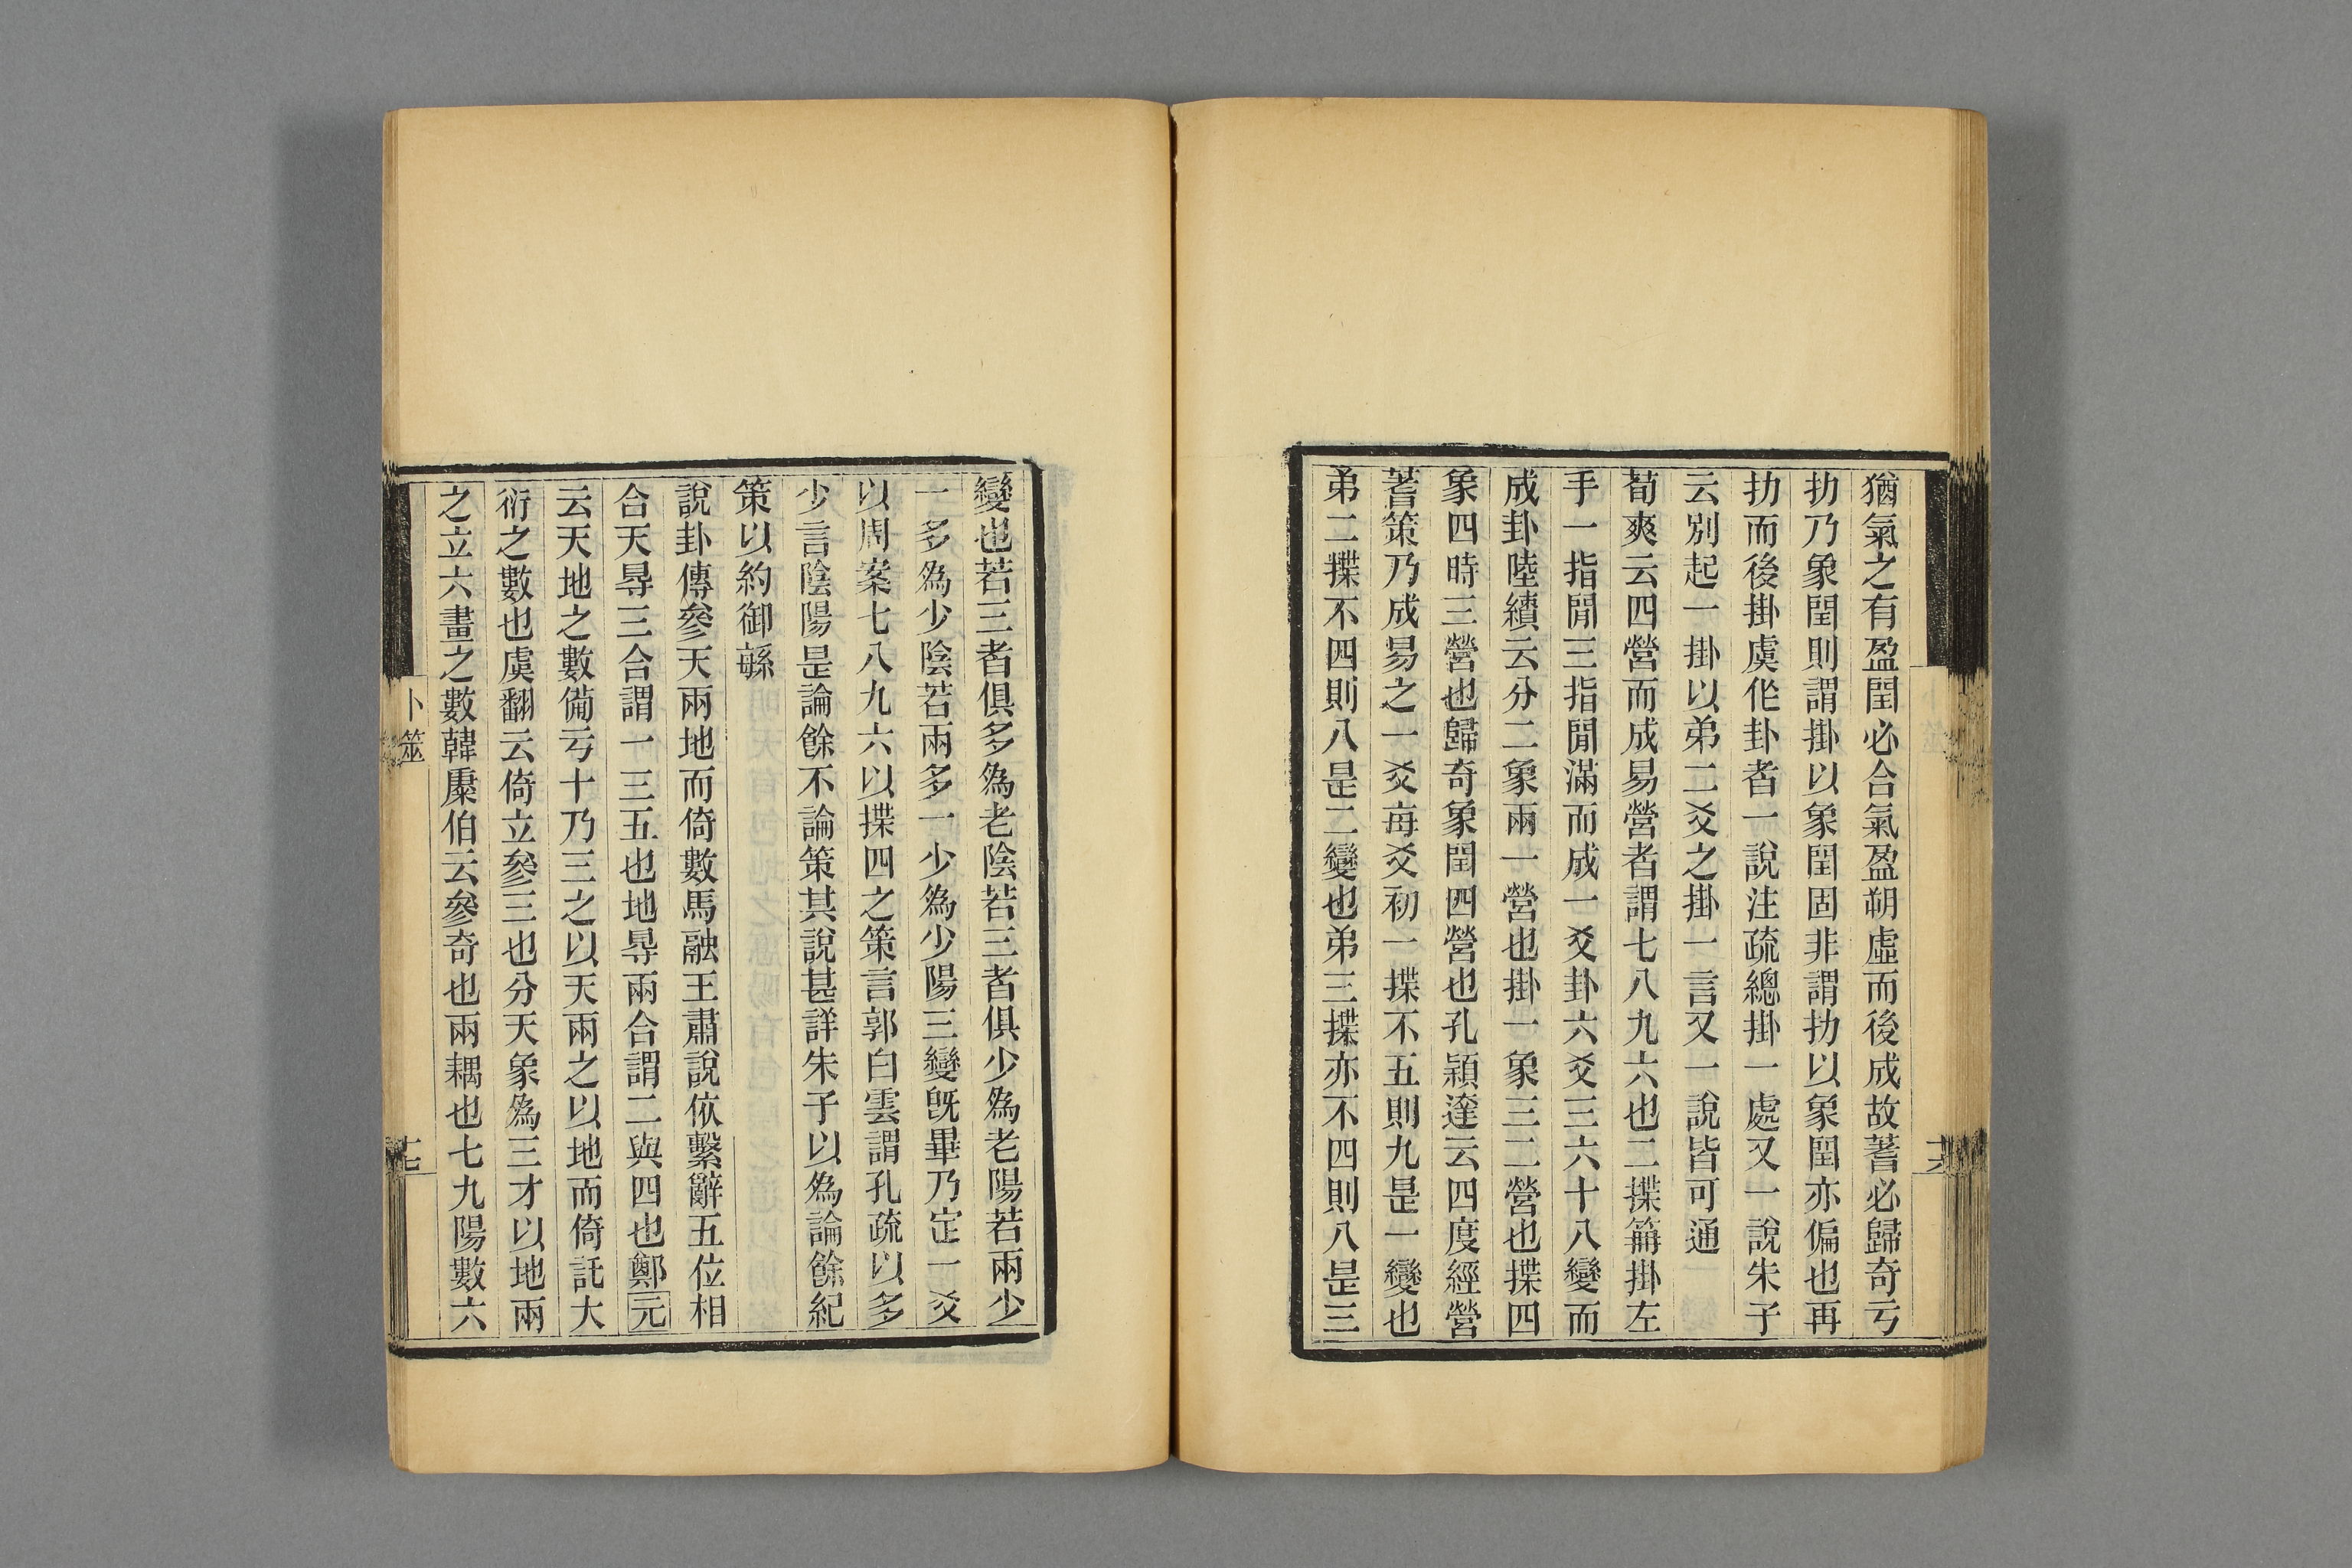 猶氣之有盈閏必合氣盈朔虛而後成故蓍必歸奇亏
扐乃象閏則謂掛以象閏固非謂扐以象閏亦偏也再
扐而後掛虞作卦者一說注疏總掛一處又一說朱子
云別起一掛以弟二爻之掛一言又一說皆可通
荀爽云四營而成易營者謂七八九六也二揲籌掛左
手一指閒三指閒滿而成一爻卦六爻三六十八變而
成卦陸績云分二象兩一營也掛一象三二營也揲四
象四時三營也歸奇象閏四營也孔穎達云四度經營
蓍策乃成易之一爻每爻初一揲不五則九是一變也
弟二揲不四則八是二變也弟三揲亦不四則八是三
十六
變也若三者俱多為老陰若三者俱少為老陽若兩少
一多為少陰若兩多一少為少陽三變旣畢乃定一爻
以周案七八九六以揲四之策言郭白雲謂孔疏以多
少言陰陽是論餘不論策其說甚詳朱子以為論餘紀
策以約御緐
說卦傳參天兩地而倚數馬融王肅說依繫辭五位相
合天㝵三合謂一三五也地㝵兩合謂二與四也鄭元
云天地之數僃亏十乃三之以天兩之以地而倚託大
衍之數也虞翻云倚立參三也分天象為三才以地兩
之立六畫之數韓康伯云參奇也兩耦也七九陽數六
卜筮
十七